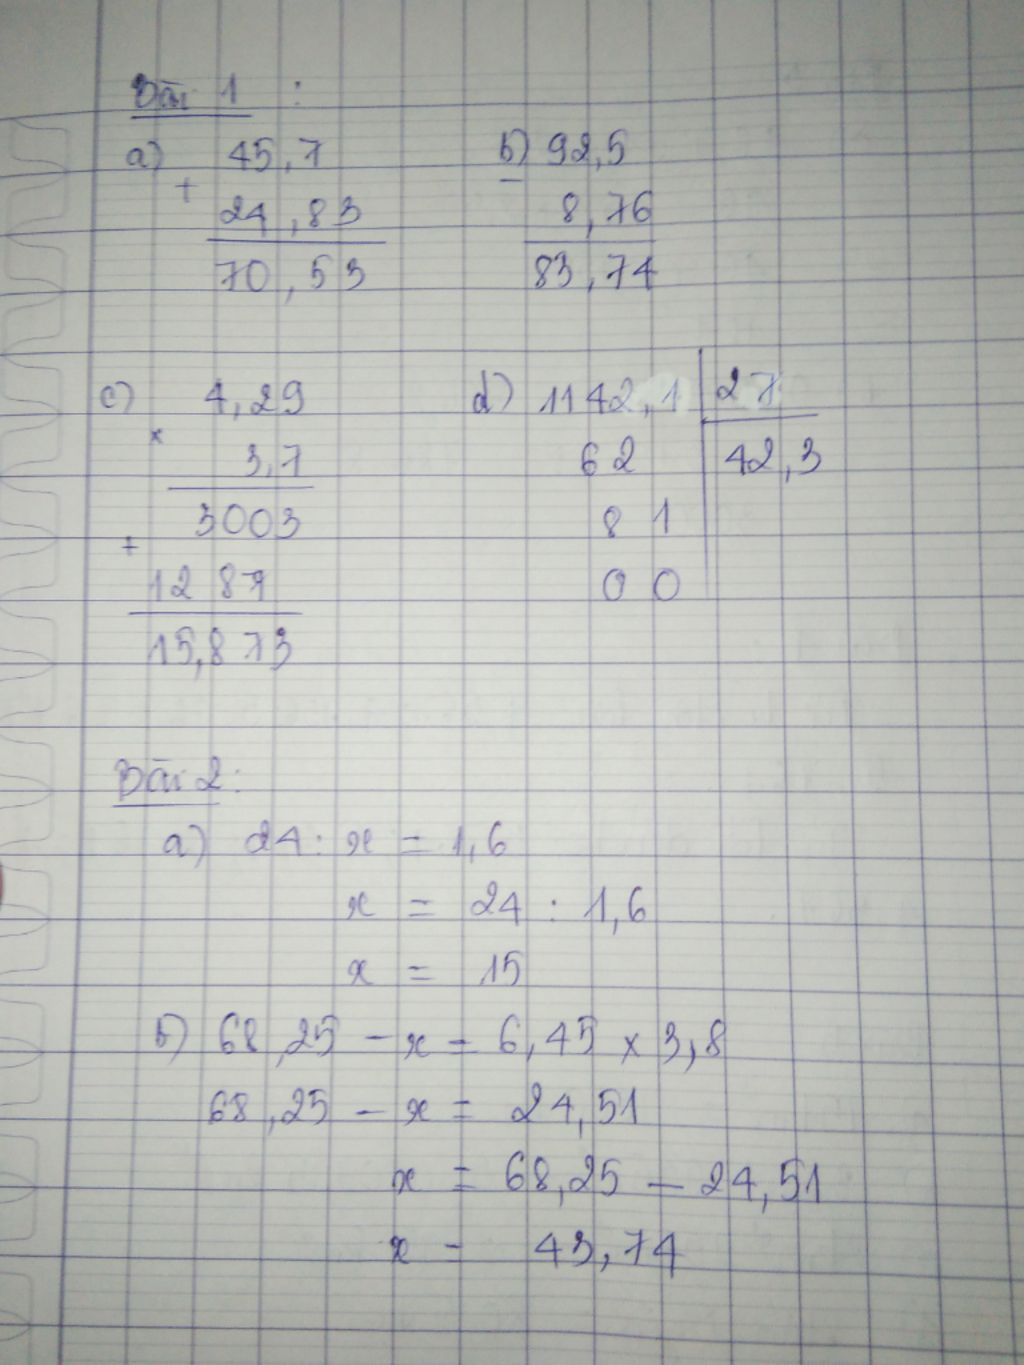 Bài 1 :
a) 45,7
+
24,83
70,53
b) 92,5
-
8,76
83,74
c) 4,29
x
3,7
3003
+
1287
15,873
d) 1142,1 27
62 42,3
81
00
Bài 2:
a) 24 : x = 1,6
x = 24 : 1,6
x = 15
b) 68,25 - x = 6,45 x 3,8
68,25 - x = 24,51
x = 68,25 - 24,51
x = 43,74